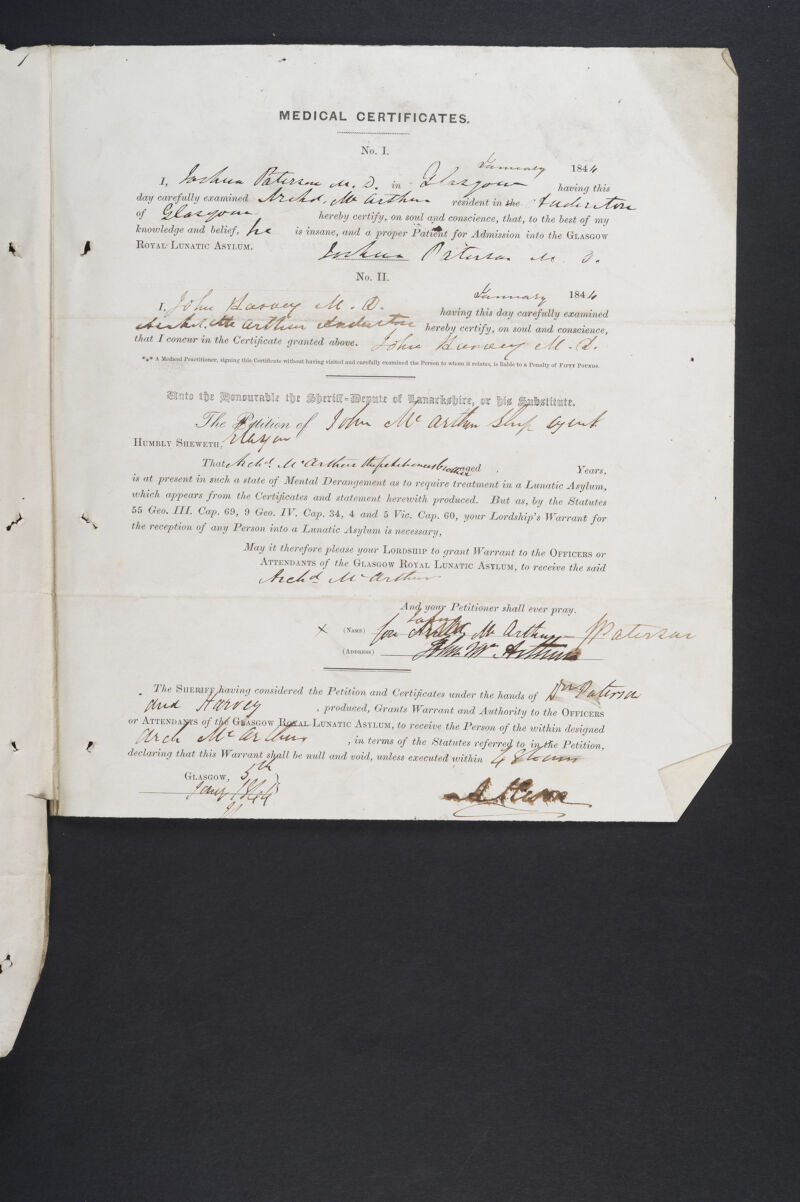 MEDICAL CERTIFICATES.
No. I.
January 1844
I, Joshua Paterson M. D. in Glasgow having this
day carefully examined Archd. Mc Arthur resident in the Anderston
of Glasgow hereby certify, on soul and conscience, that, to the best of my
knowledge and belief, he is insane, and a proper Patient for Admission into the GLASGOW
ROYAL LUNATIC ASYLUM.
Joshua Paterson M. D.
No. II.
January 1844
I, John Harvey M. D. having this day carefully examined
Archd. Mc Arthur Anderston hereby certify, on soul and conscience,
that I concur in the Certificate granted above. John Harvey M. D.
*** A Medical Practitioner, signing this Certificate without having visited and carefully examined the Person to whom it relates, is liable to a Penalty of FIFTY POUNDS.
Unto the Honourable the Sheriff-Depute of Lanarkshire, or his Substitute.
The Petition of John Mc Arthur Ship Agent
HUMBLY SHEWETH, Glasgow
That Archd. Mc Arthur the petitioners brother aged Years,
is at present in such a state of Mental Derangement as to require treatment in a Lunatic Asylum,
which appears from the Certificates and statement herewith produced. But as, by the Statutes
55 Geo. III. Cap. 69, 9 Geo. IV. Cap. 34, 4 and 5 Vic. Cap. 60, your Lordship's Warrant for
the reception of any Person into a Lunatic Asylum is necessary,
May it therefore please your LORDSHIP to grant Warrant to the OFFICERS or
ATTENDANTS of the GLASGOW ROYAL LUNATIC ASYLUM, to receive the said
Archd Mc Arthur
And your Petitioner shall ever pray.
John
(NAME) for Mc Arthur J Paterson
(ADDRESS) John Mc Arthur
The SHERIFF having considered the Petition and Certificates under the hands of Drs Paterson
and Harvey , produced, Grants Warrant and Authority to the OFFICERS
or ATTENDANTS of the GLASGOW ROYAL LUNATIC ASYLUM, to receive the Person of the within designed
Arch Mc Arthur , in terms of the Statutes referred to in the Petition,
declaring that this Warrant shall be null and void, unless executed within 48 hours
GLASGOW, 5th
Jany 1844